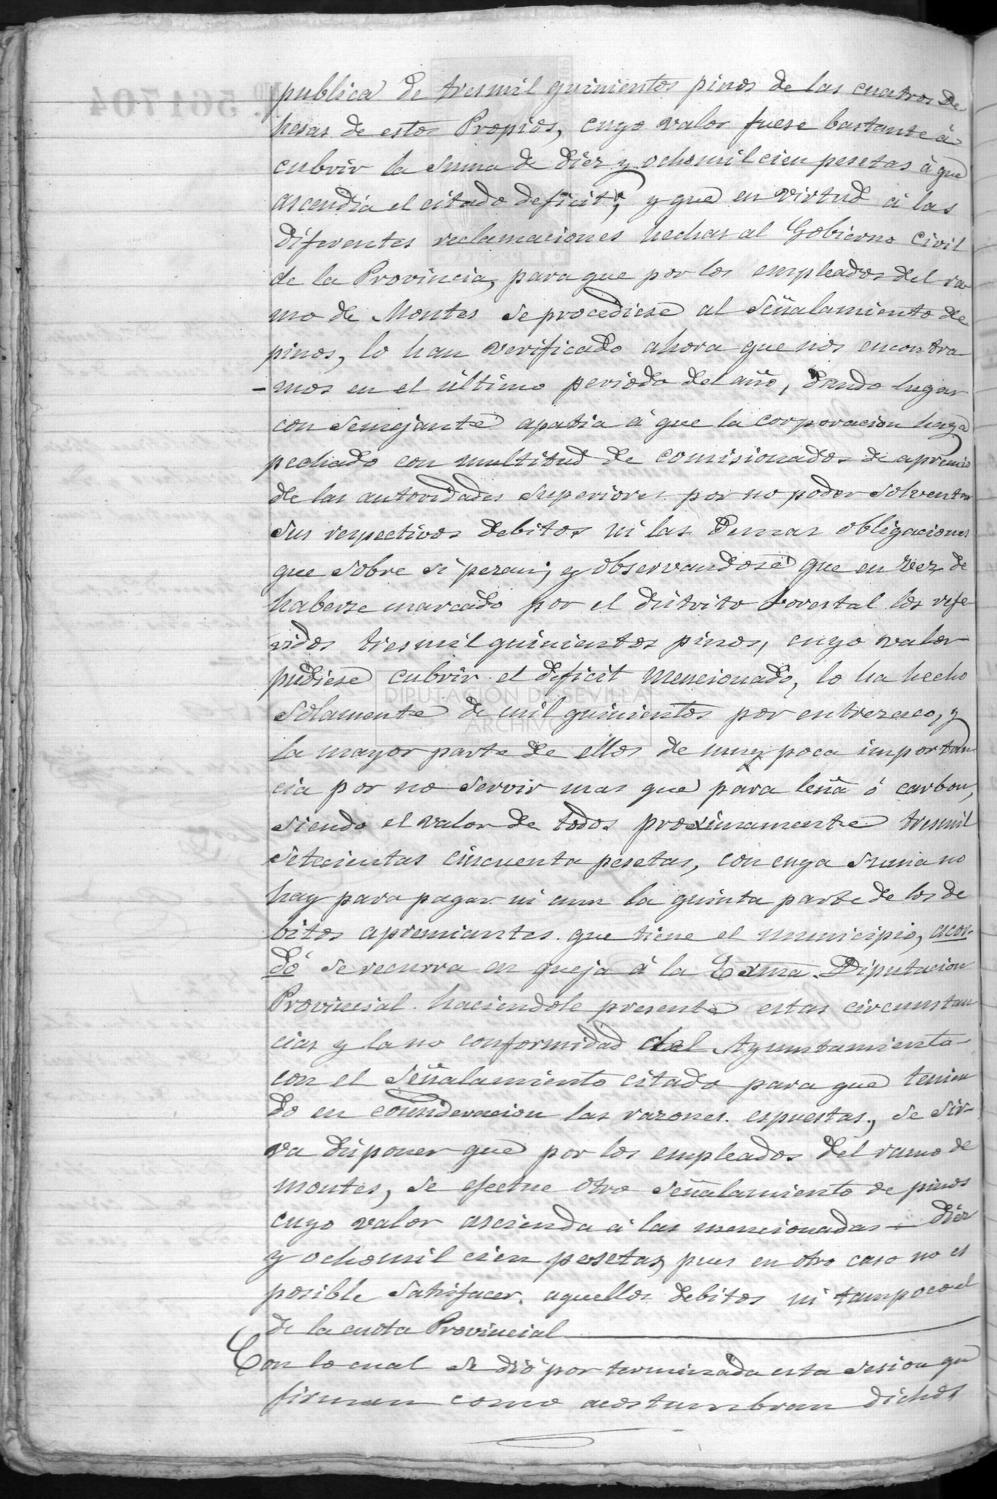 publica de tresmil quinientos pinos de las cuatros De
hesas de estos Propios, cuyo valor fuese bastante á
cubrir la Suma de diez y ochomil cien pesetas á que
ascendia el citado deficit; y que en virtud á las
diferentes reclamaciones hechas al Gobierno Civil
de la Provincia, para que por los empleados del ra
mo de Montes se procediese al Señalamiento de
pinos, lo han verificado ahora que nos encontra
-mos en el último periodo del año, dando lugar
con semejante apatia á que la corporacion haya
pechado con multitud de comisionados de apremio
de las autoridades superiores por no poder solventar
sus respectivos debitos ni las demas obligaciones
que sobre si pesan; y observandose que en vez de
haberse marcado por el distrito forestal los refe
ridos tresmil quinientos pinos, cuyo valor
pudiese cubrir el deficit mencionado, lo ha hecho
solamente de mil quinientos por entresaco, y
la mayor parte de ellos de muy poca importan
cia por no servir mas que para leña ó carbon,
siendo el valor de todos proximamente tresmil
setecientas cincuenta pesetas, con cuya suma no
hay para pagar ni aun la quinta parte de los de
bitos apremiantes que tiene el municipio, acor
dó se recurra en queja á la Exma. Diputacion
Provincial haciendole presente estas circunstan
cias y la no conformidad del Ayuntamiento
con el Señalamiento citado para que tenien
do en consideracion las razones espuestas, se sir
va disponer que por los empleados del ramo de
montes, se efectue otro señalamiento de pinos
cuyo valor ascienda á las mencionadas diez
y ochomil cien pesetas, pues en otro caso no es
posible satisfacer aquellos debitos ni tampoco el
de la cuota Provincial
Con lo cual se dió por terminada esta sesion que
firman como acostumbran dichos
561704
DIPUTACION DE SEVILLA
ARCHIVO